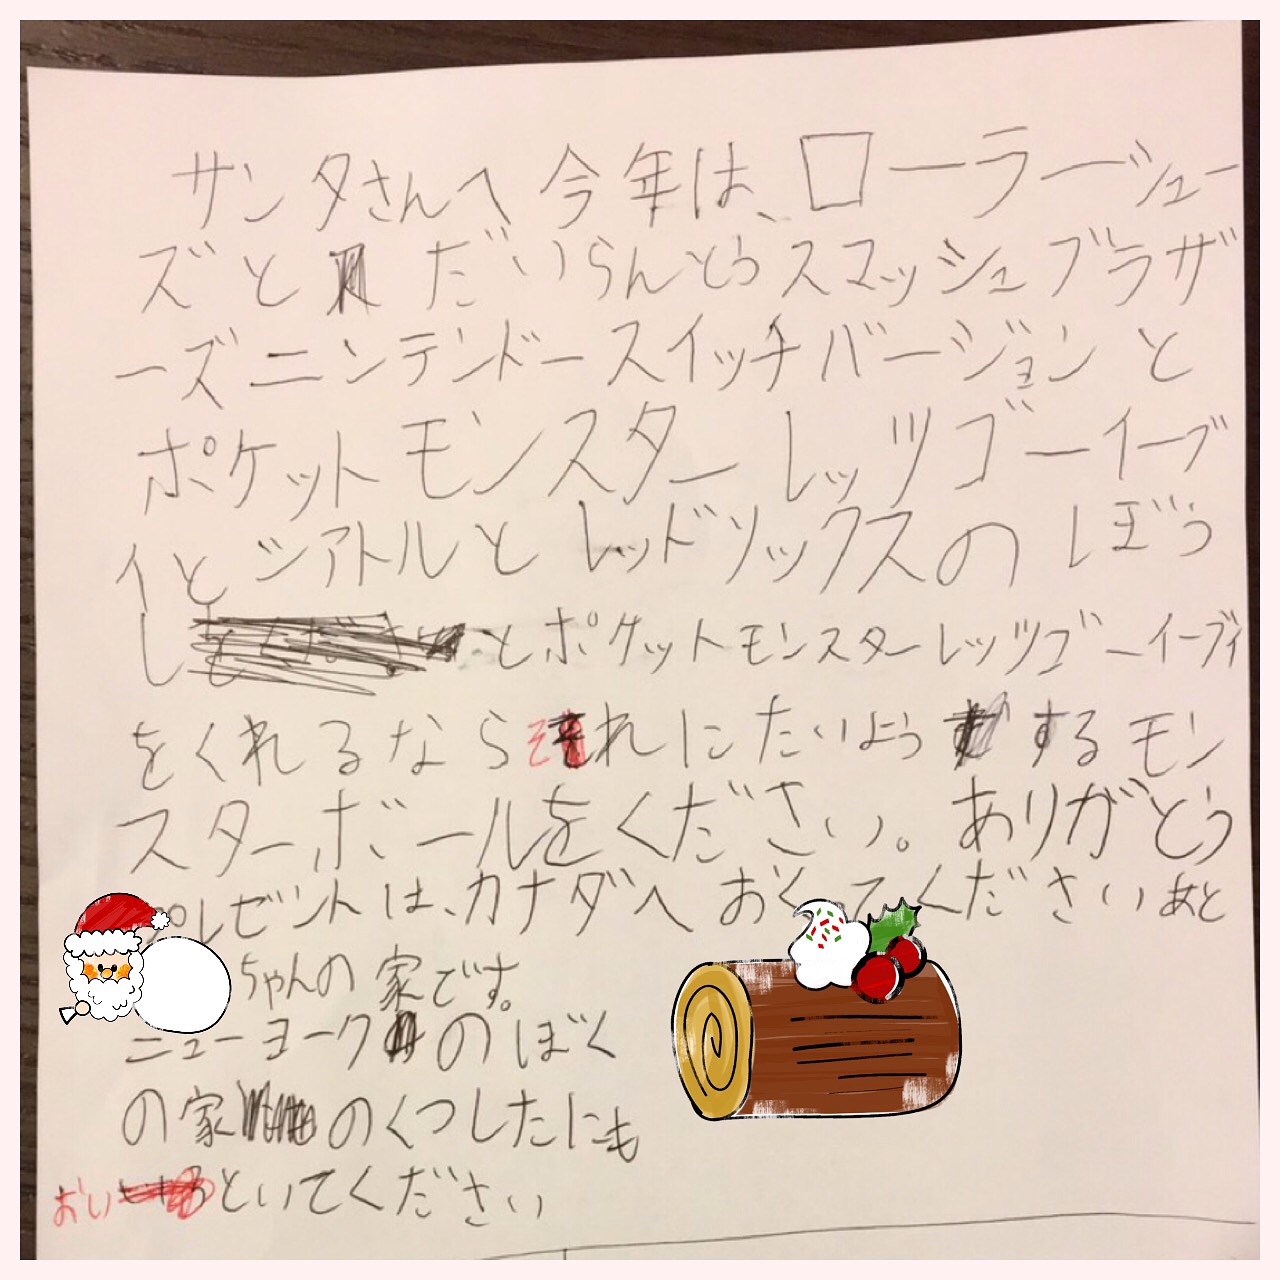 サンタさんへ 今年は、ローラーシュー
ズと だいらんとうスマッシュブラザ
ーズニンテンドースイッチバージョンと
ポケットモンスターレッツゴーイーブ
イとシアトルとレッドソックスのぼう
し とポケットモンスターレッツゴーイーブィ
をくれるならそれにたいよう するモン
スターボールをください。ありがとう
プレゼントは、カナダへおくってくださいあと
ちゃんの家です。
ニューヨーク のぼく
の家 のくつしたにも
おい といてください